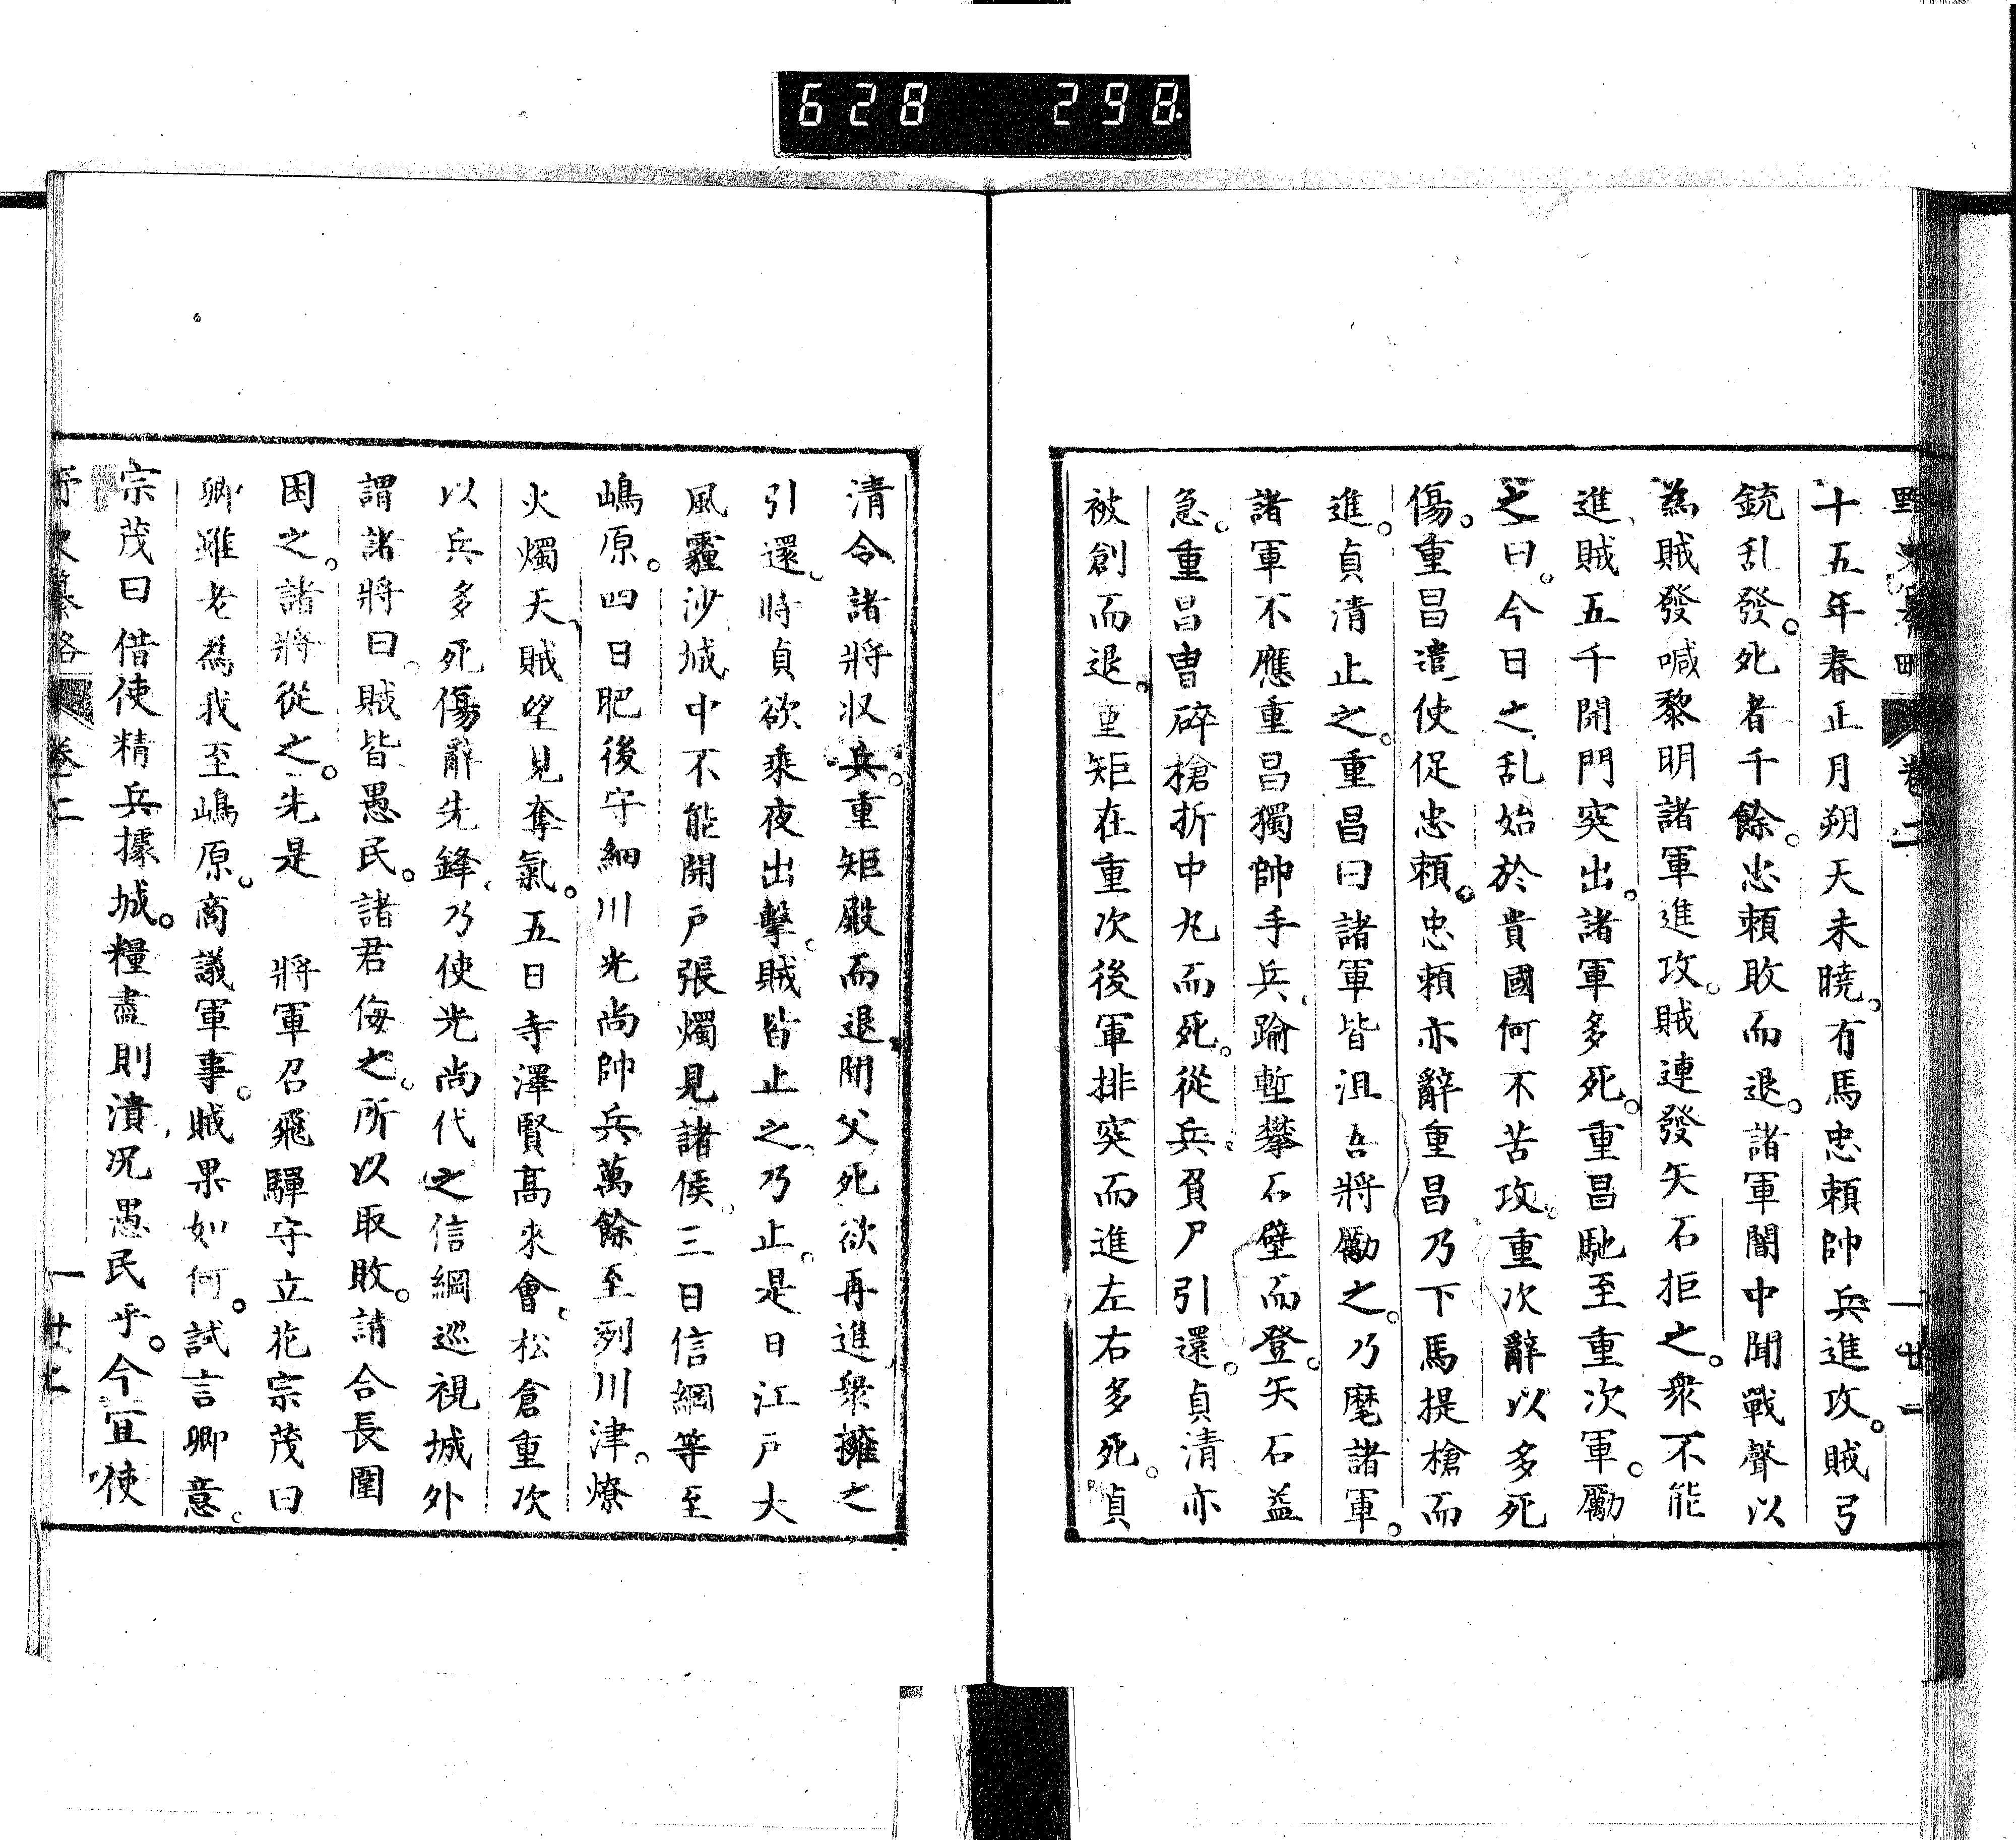 628 298
十五年春正月朔天未曉。有馬忠頼帥兵進攻。賊弓
銃乱發。死者千餘。忠頼敗而退。諸軍闇中聞戰聲以
為賊發喊黎明諸軍進攻。賊連發矢石拒之。衆不能
進、賊五千開門突出。諸軍多死。重昌馳至重次軍。勵
之曰。今日之乱始於貴國何不苦攻。重次辭以多死
傷。重昌遣使促忠頼。忠頼亦辭重昌乃下馬提槍而
進。貞清止之。重昌曰諸軍皆沮吾將勵之。乃麾諸軍。
諸軍不應重昌獨帥手兵、踰塹攀石壁而登。矢石益
急。重昌冑碎槍折中丸而死。從兵負尸引還。貞清亦
被創而退。重矩在重次後軍排突而進左右多死。貞
清令諸將収兵。重矩殿而退聞父死欲再進、衆擁之
引還。時貞欲乘夜出擊。賊皆止之、乃止。是日江戸大
風霾沙城中不能開戸張燭見諸侯。三日信綱等至
嶋原。四日肥後守細川光尚帥兵萬餘至列川津。燎
火燭天、賊望見奪氣。五日寺澤賢髙來會、松倉重次
以兵多死傷辭先鋒、乃使光尚代之信綱巡視城外
謂諸將曰。賊皆愚民。諸君侮之。所以取敗。請合長圍
困之。諸將從之。先是　將軍召飛驒守立花宗茂曰
卿雖老為我至嶋原。商議軍事。賊果如何。試言卿意。
宗茂曰借使精兵據城。糧盡則潰、况愚民乎。今宜使
卷二